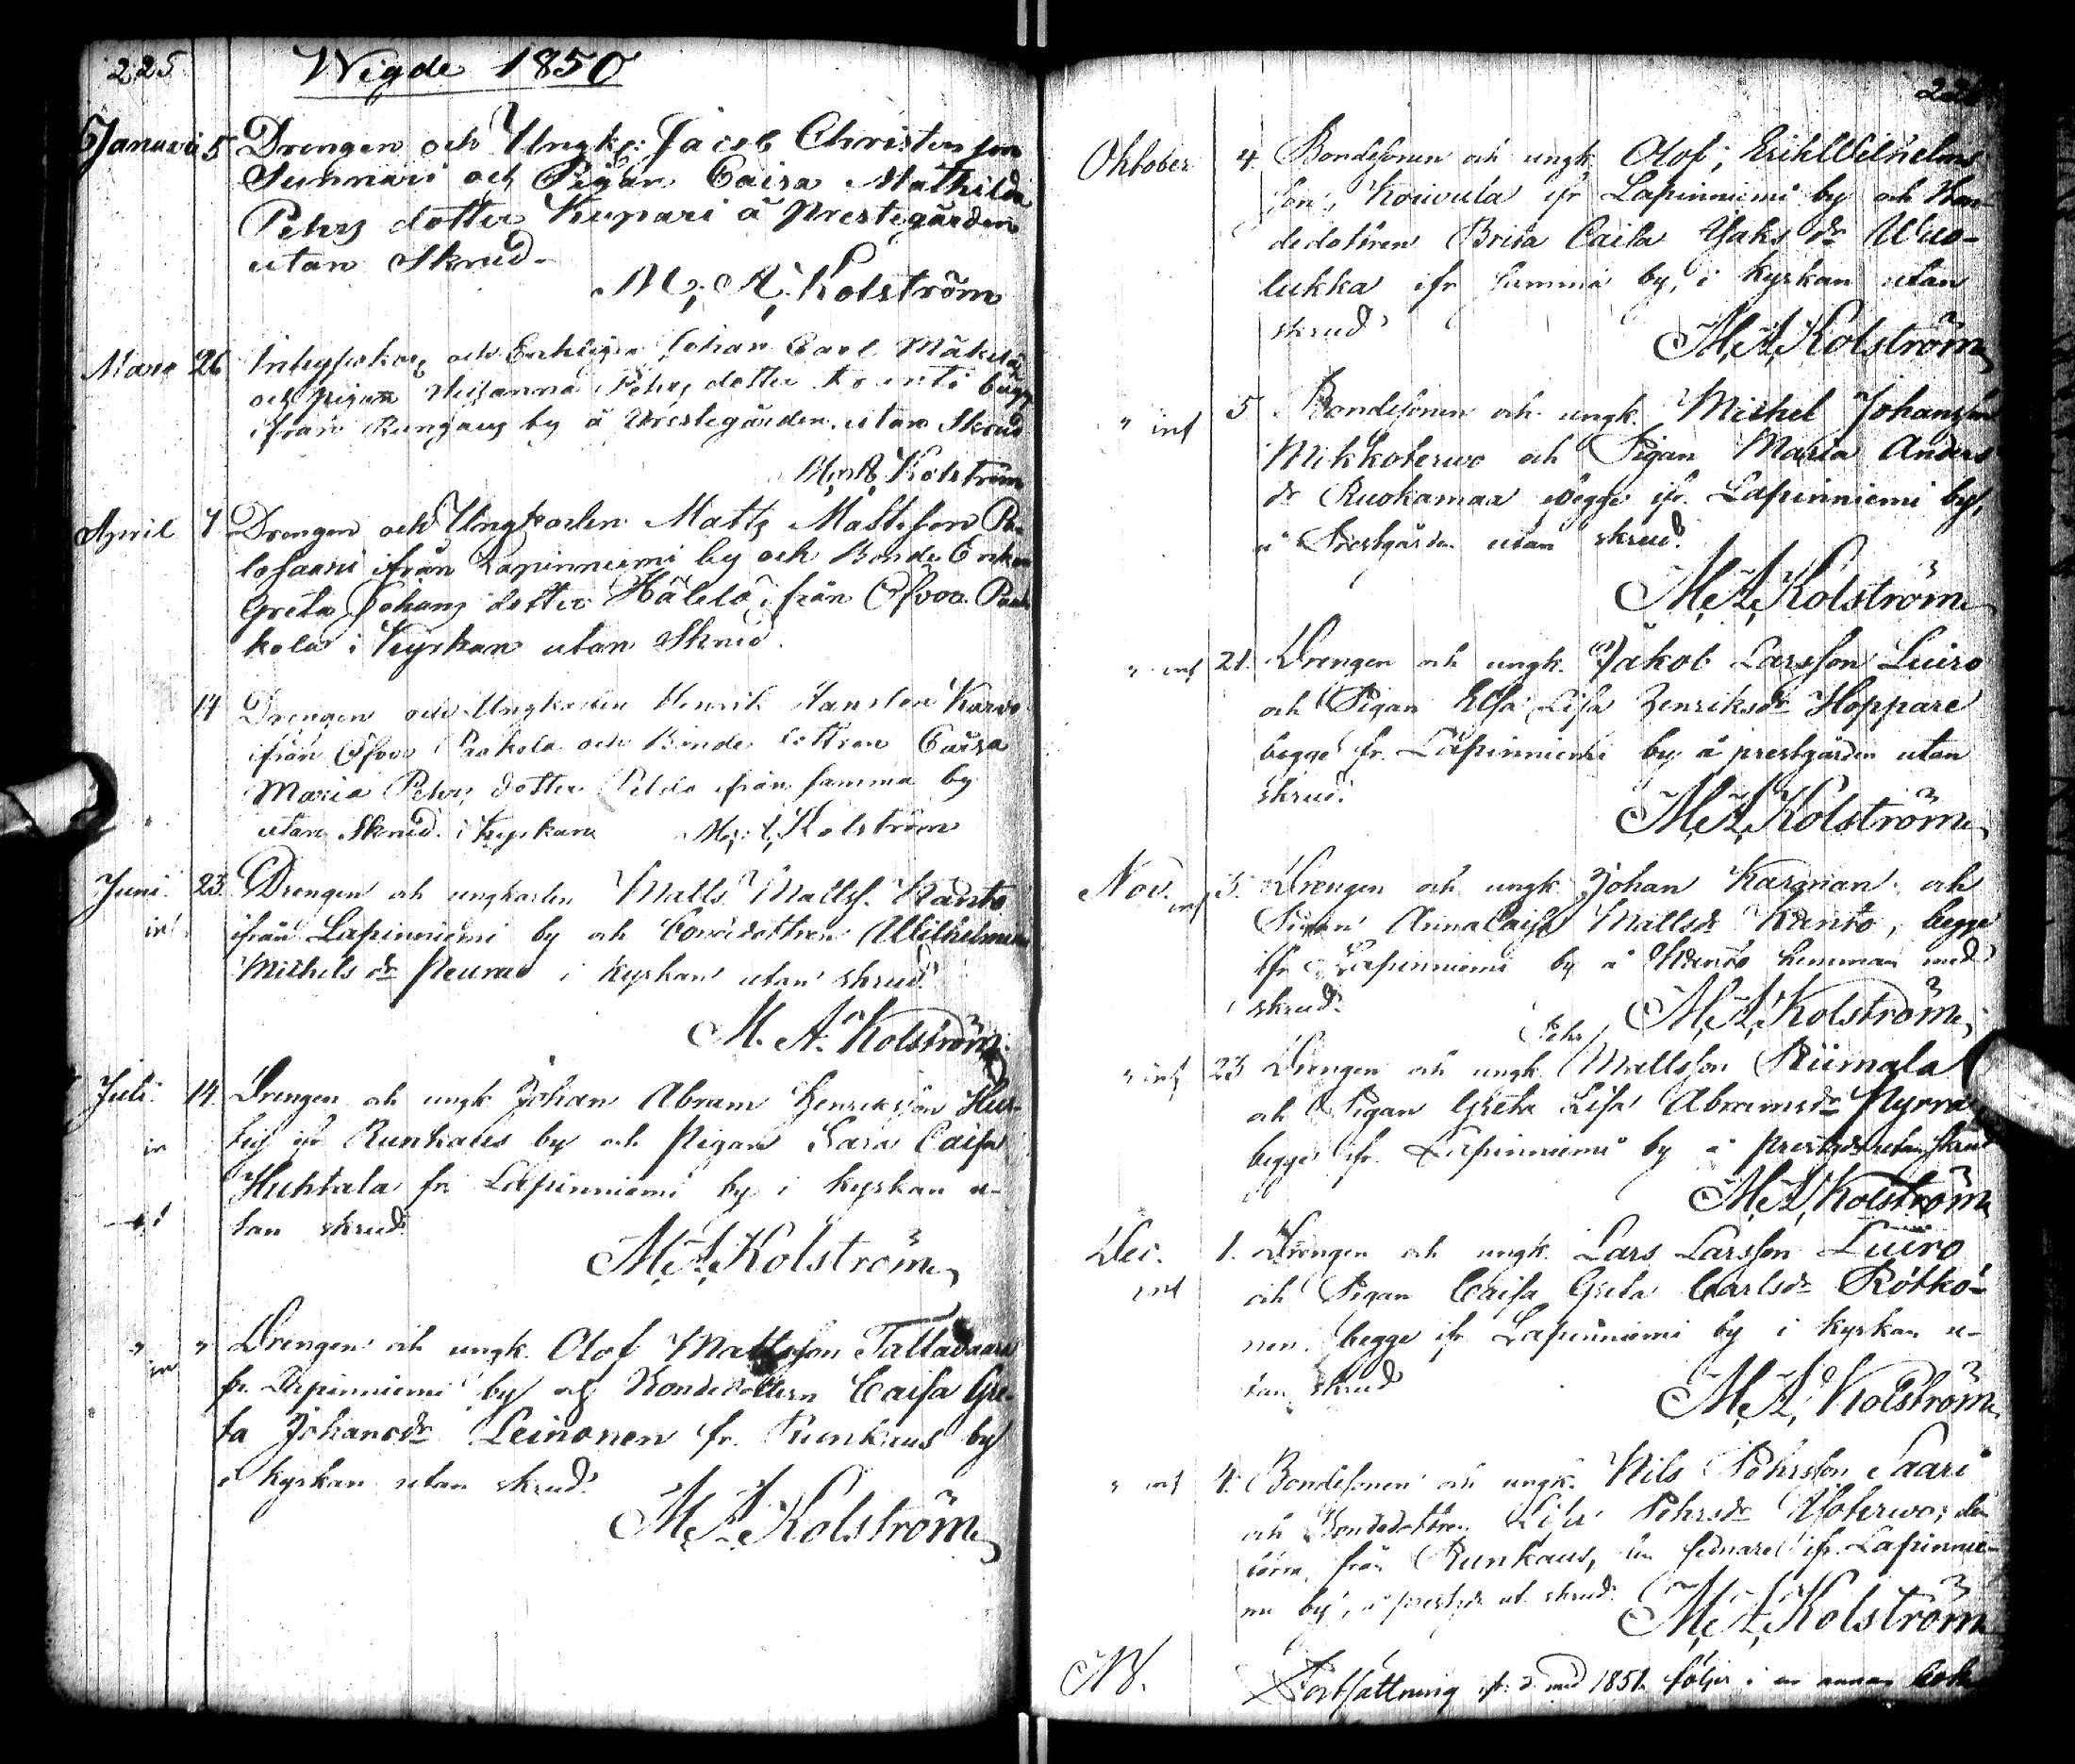 225
Wigde 1850
Januari 5 Drengen och Ungk: Jacob Christersson
Sunnari och Pigan Caisa Mathilda
Pehrs dotter Kupari å Prestegården
utan Skrud.
M. A. Kolström
Mars 26 och Enkling Johan Carl Mäkelä
och pigan Pehrs dotter
ifrån Rungaus by å Prestegården utan Skrud
M. A. Kolström
April 7 Drengen och Ungkarlen Matts Mattsson Pa-
losaari ifrån Lapinniemi by och Bonde Enkan
Greta Johans dotter från Öfver Paa-
kola i Kyrkan utan Skrud.
14 Drengen och Ungkarlen Henrik Hansson Karvo
ifrån Öfver Paakola och Bonde dottren Caisa
Maria Pehrs dotter Peldo ifrån samma by
utan Skrud i Kyrkan M. A. Kolström
Juni 23. Drengen och ungkarlen Matts Mattss. Kanto
int ifrån Lapinniemi by och Bondedottren Wilhelmina
Michels dr Neura i kyrkan utan skrud.
M. A. Kolström
Juli 14. Drengen och ungk. Johan Abram Henriksson Hur-
in ifr Runkaus by och Pigan Sara Caisa
Huhtala fr. Lapinniemi by i kyrkan u-
tan skrud.
M. A. Kolström
" " Drengen och ungk. Olof Mattsson Tallavaara
in fr. Lapinniemi by och Bondedottern Caisa Gre-
ta Johansdr Leinonen fr. Runkaus by
i kyrkan utan skrud.
M. A. Kolström
Oktober 4. Bondesonen och ungk. Olof, Erik Wilhelms
son, Koivula ifr Lapinniemi by och Bon-
dedottren Brita Caisa Isaks dr Wuo-
lukka ifr samma by, i kyrkan utan
skrud
M. A. Kolström
" int 5 Bondesonen och ungk. Michel Johansson
Mikkoterwo och Pigan Maria Anders
dr Ruokamaa begge ifr. Lapinniemi by,
å Prestgården utan skrud.
M. A. Kolström
" int 21. Drengen och ungk. Jakob Larsson Luiro
och Pigan Elsa Lisa Henriksdr Hoppare
begge fr. Lapinniemi by å prestgården utan
skrud.
M. A. Kolström
Nov. int 3. Drengen och ungk. Johan Karman och
Pigan Anna Caisa Mattsdr Kanto, begge
ifr Lapinniemi by å Kanto hemman med
skrud.
M. A. Kolström
Pehr
" int 23 Drengen och ungk. Mattsson Riimala
och Pigan Greta Lisa Abramsdr Nyrra
begge ifr. Lapinniemi by å prestgdn utan skrud
M. A. Kolström
Dec. 1. Drengen och ungk. Lars Larsson Luiro
int och Pigan Caisa Greta Carlsdr Rötkö-
nen. begge ifr Lapinniemi by i kyrkan u-
tan skrud
M. A. Kolström
" int 4. Bondesonen och ungk. Nils Pehrsson Saari
och Bondedottren Lisa Pehrsdr Yloterwo, den
förra från Runkaus, den sednare ifr. Lapinnie-
mi by, å prestgdn ut. skrud.
M. A. Kolström
NB. Fortsättning ifr. d. med 1851 följer i en annan bok